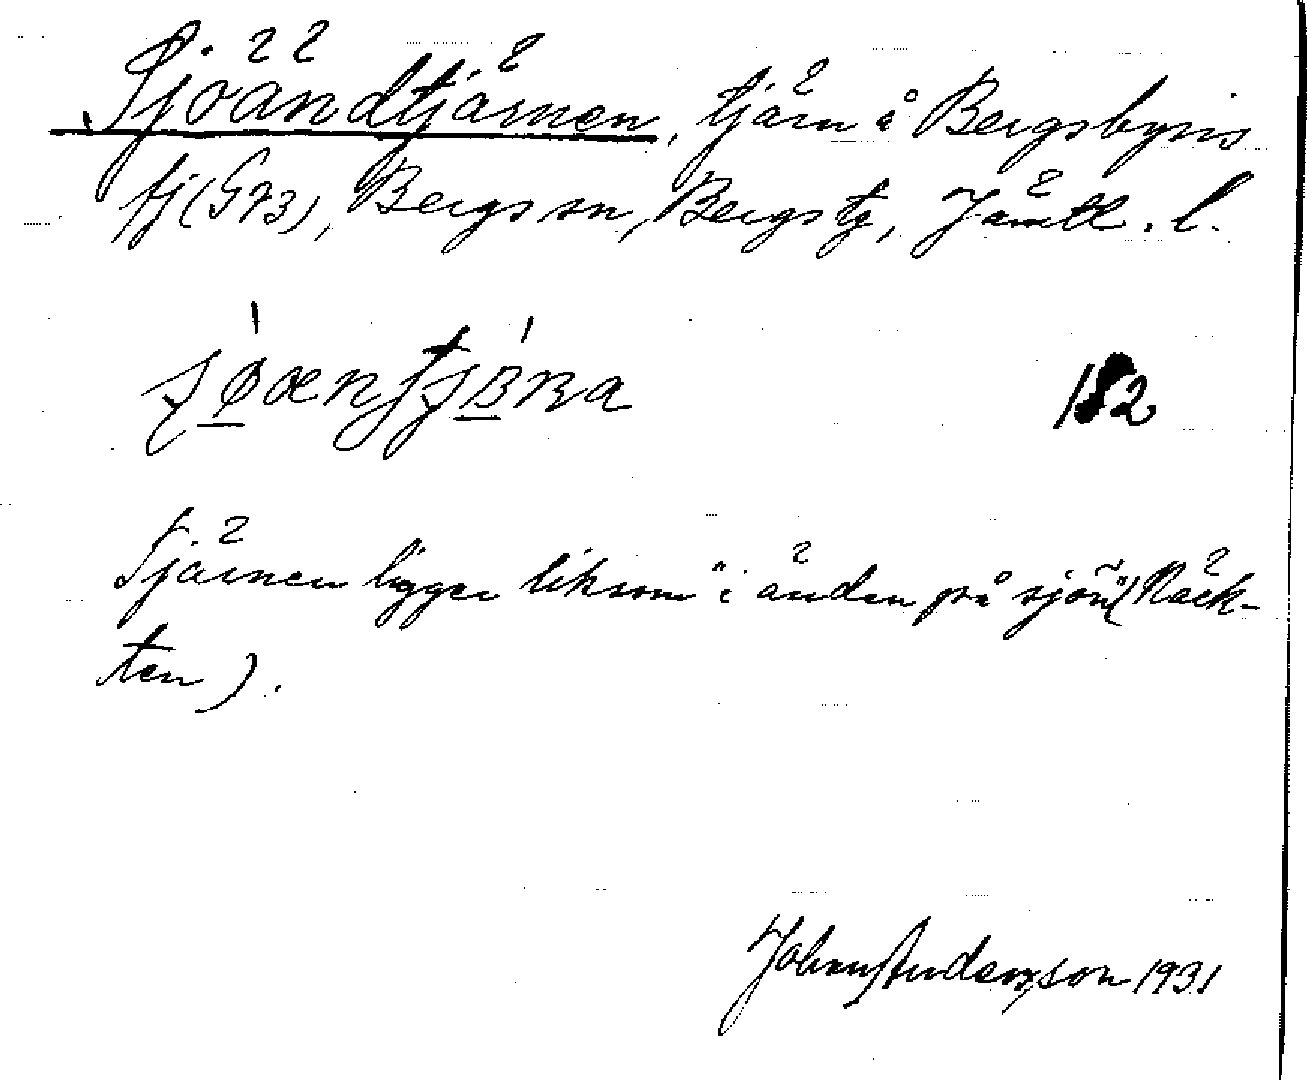 Sjöändtjärnen, tjärn å Bergsbyns
fj (G73), Bergs sn, Bergs tg, Jämtl. l.
182
Tjärnen ligger liksom "i änden på sjön" (Näck-
ten).
Johan Andersson 1931